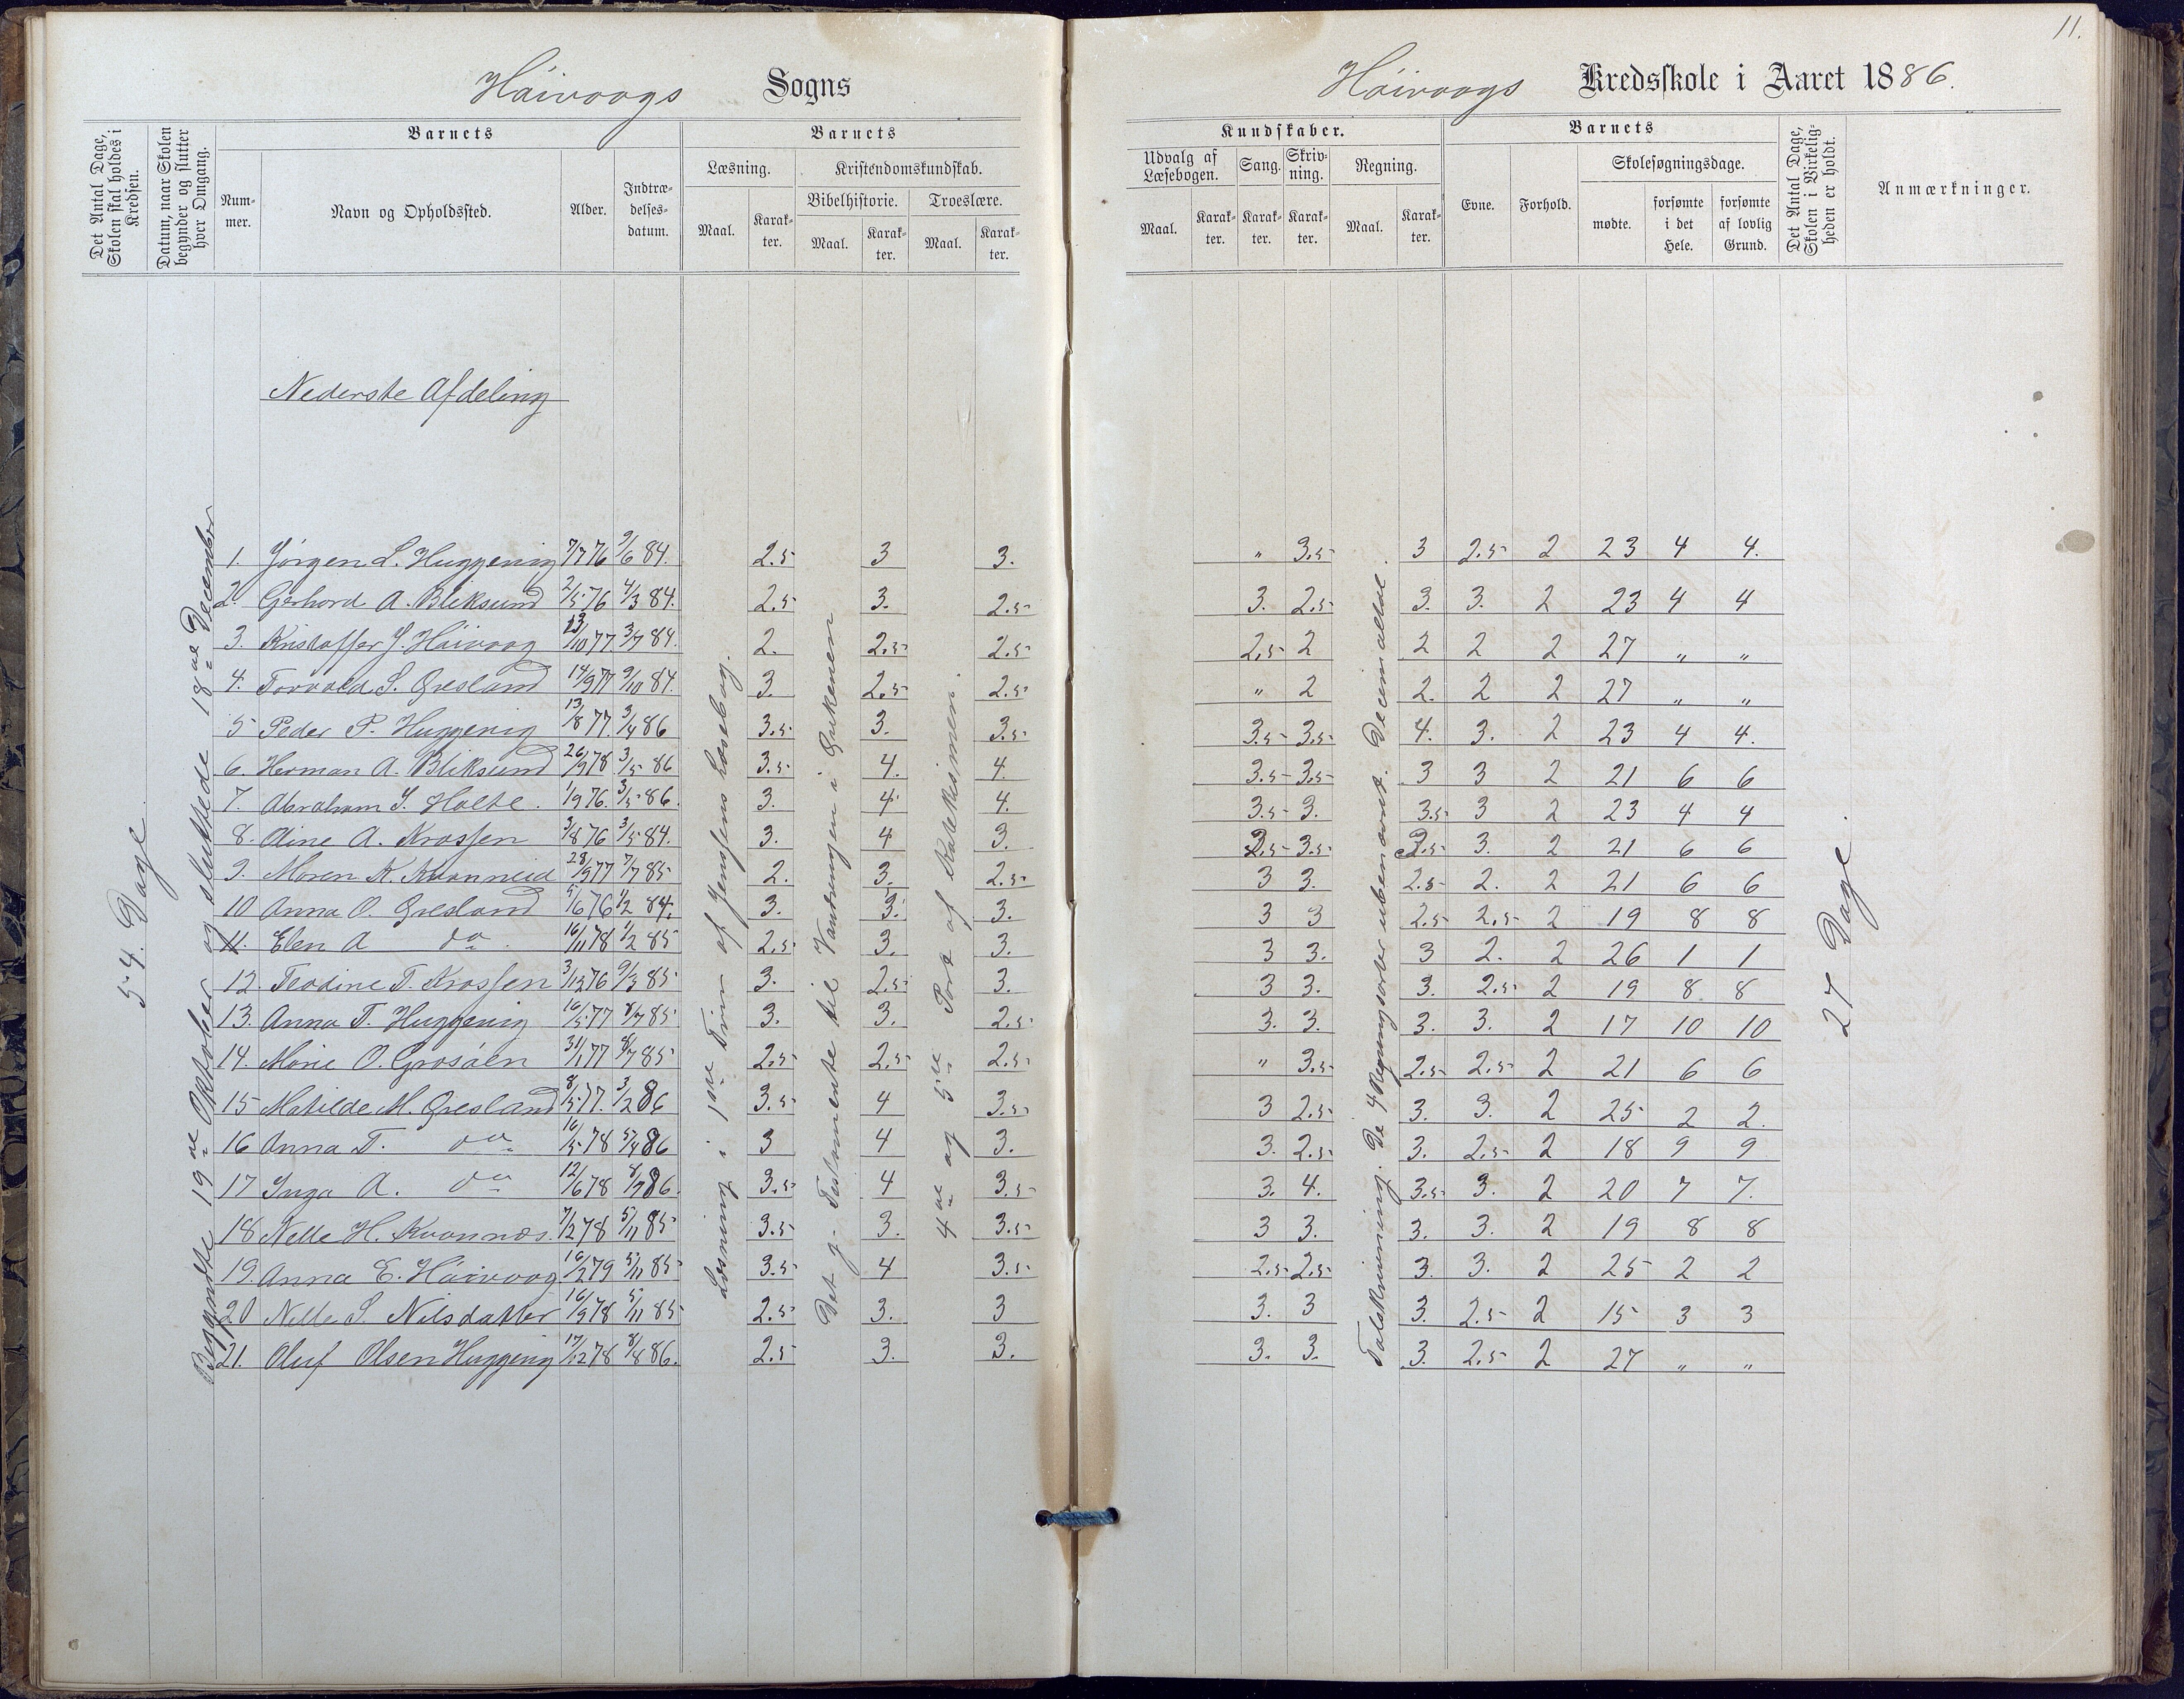 11.
Häivaags Sogns
Häivaags Kredsskole i Aaret 1886.
Det Antal Dage, Skolen skal holdes i Kredsen.
Datum, naar Skolen begynder og slutter hver Omgang.
Barnets
Num-mer.
Navn og Opholdssted.
Alder.
Indtræ-delses-datum.
Barnets
Læsning.
Maal.
Karak-ter.
Kristendomskundskab.
Bibelhistorie.
Maal.
Karak-ter.
Troeslære.
Maal.
Karak-ter.
Kundskaber.
Udvalg af Læsebogen.
Maal.
Karak-ter.
Sang.
Karak-ter.
Skriv-ning.
Karak-ter.
Regning.
Maal.
Karak-ter.
Barnets
Evne.
Forhold.
Skolesøgningsdage.
mødte.
forsømte i det Hele.
forsømte af lovlig Grund.
Det Antal Dage, Skolen i Virkelig-heden er holdt.
Anmærkninger.
Nederste Afdeling
54. Dage.
Begyndte 19de Oktober og sluttede 18de December
Læsning i 1ste Trin af Jensens Læsebog.
Det g. Testamente til Vandringen i Ørkenen
4de og 5te Part af Katekismen.
Talskrivning. De 4 Regningsarter ubenævnt. Decimaltal.
27 Dage.
1. Jörgen L. Huggenig 7/7 76 9/6 84. 2.5 3 3. " 3.5 3 2.5 2 23 4 4.
2. Gerhard A. Bliksund 2/5 76 4/3 84. 2.5 3. 2.5 3. 2.5 3. 3. 2 23 4 4
3. Kristoffer J. Häivaag 13/10 77. 3/7 84. 2. 2.5 2.5 2.5 2 2 2 2 27 " "
4. Torvald S. Øresland 14/9 77 9/10 84. 3. 2.5 2.5 " 2 2. 2 2 27 " "
5 Peder P. Huggenig 13/8 77. 3/4 86 3.5 3. 3.5 3.5 3.5 4. 3. 2 23 4 4.
6. Herman A. Bliksund 26/9 78 3/5 86 3.5 4. 4. 3.5 3.5 3 3 2 21 6 6
7. Abraham S. Holte. 1/9 76. 3/5 86. 3. 4 4. 3.5 3. 3.5 3 2 23 4 4
8. Aine A. Krossen 3/8 76 3/5 84. 3. 4 3. 2.5 3.5 2.5 3. 2 21 6 6
9. Maren K. Kvanneid 28/9 77 7/7 85 2. 3. 2.5 3 3. 2.5 2. 2 21 6 6
10 Anna O. Øresland 5/6 76 1/2 84. 3. 3. 3. 3 3 2.5 2.5 2 19 8 8
11. Elen A do. 16/11 78 1/2 85 2.5 3. 3. 3 3. 3 2. 2 26 1 1
12. Teodine T. Krossen 3/12 76 9/3 85 3. 2.5 3. 3 3. 3. 2.5 2 19 8 8
13. Anna T. Huggenig 16/5 77 8/7 85 3. 3. 2.5 3. 3. 3. 3. 2 17 10 10
14. Marie O. Grosåen 31/1 77 8/7 85 2.5 2.5 2.5 " 3.5 2.5 2.5 2 21 6 6
15 Matilde M. Øresland 8/5 77. 3/2 86 3.5 4 3.5 3 2.5 3. 3. 2 25 2 2.
16 Anna T. do 16/5 78 5/4 86 3 4 3. 3. 2.5 3. 2.5 2 18 9 9
17 Inga A. do 12/6 78 8/7 86. 3.5 4 3.5 3. 4. 3.5 3. 2 20 7 7.
18 Nelle H. Kvannæs. 7/2 78 5/11 85 3.5 3. 3.5 3 3. 3. 3. 2 19 8 8
19. Anna E. Häivaag 16/2 79 5/11 85 3.5 4 3.5 2.5 2.5 3. 3. 2 25 2 2
20 Nelle S. Nilsdatter 16/9 78 5/11 85 2.5 3. 3 3. 3 3. 2.5 2 15 3 3
21. Oluf Olsen Huggenig 17/12 78 8/8 86. 2.5 3. 3. 3. 3. 3. 2.5 2 27 " "